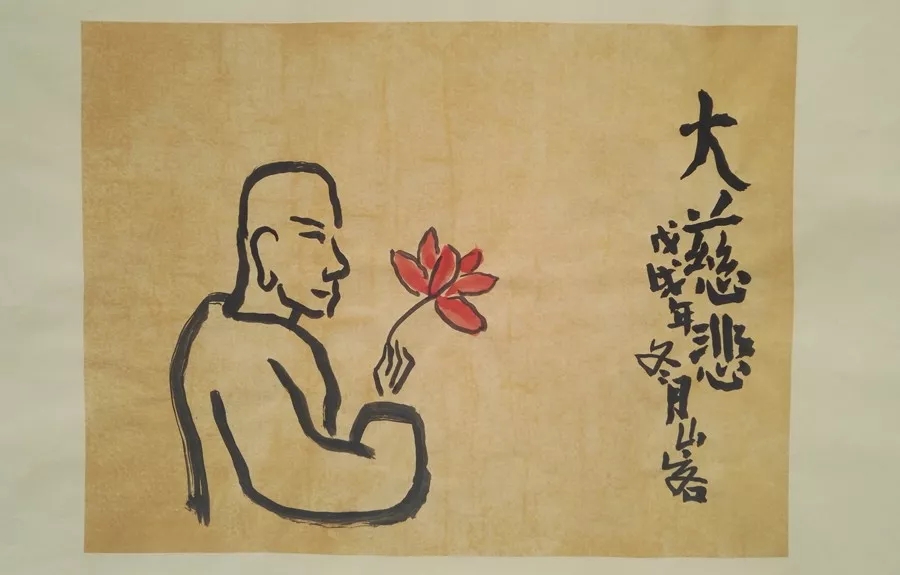 大慈悲
戊戌年冬月山客